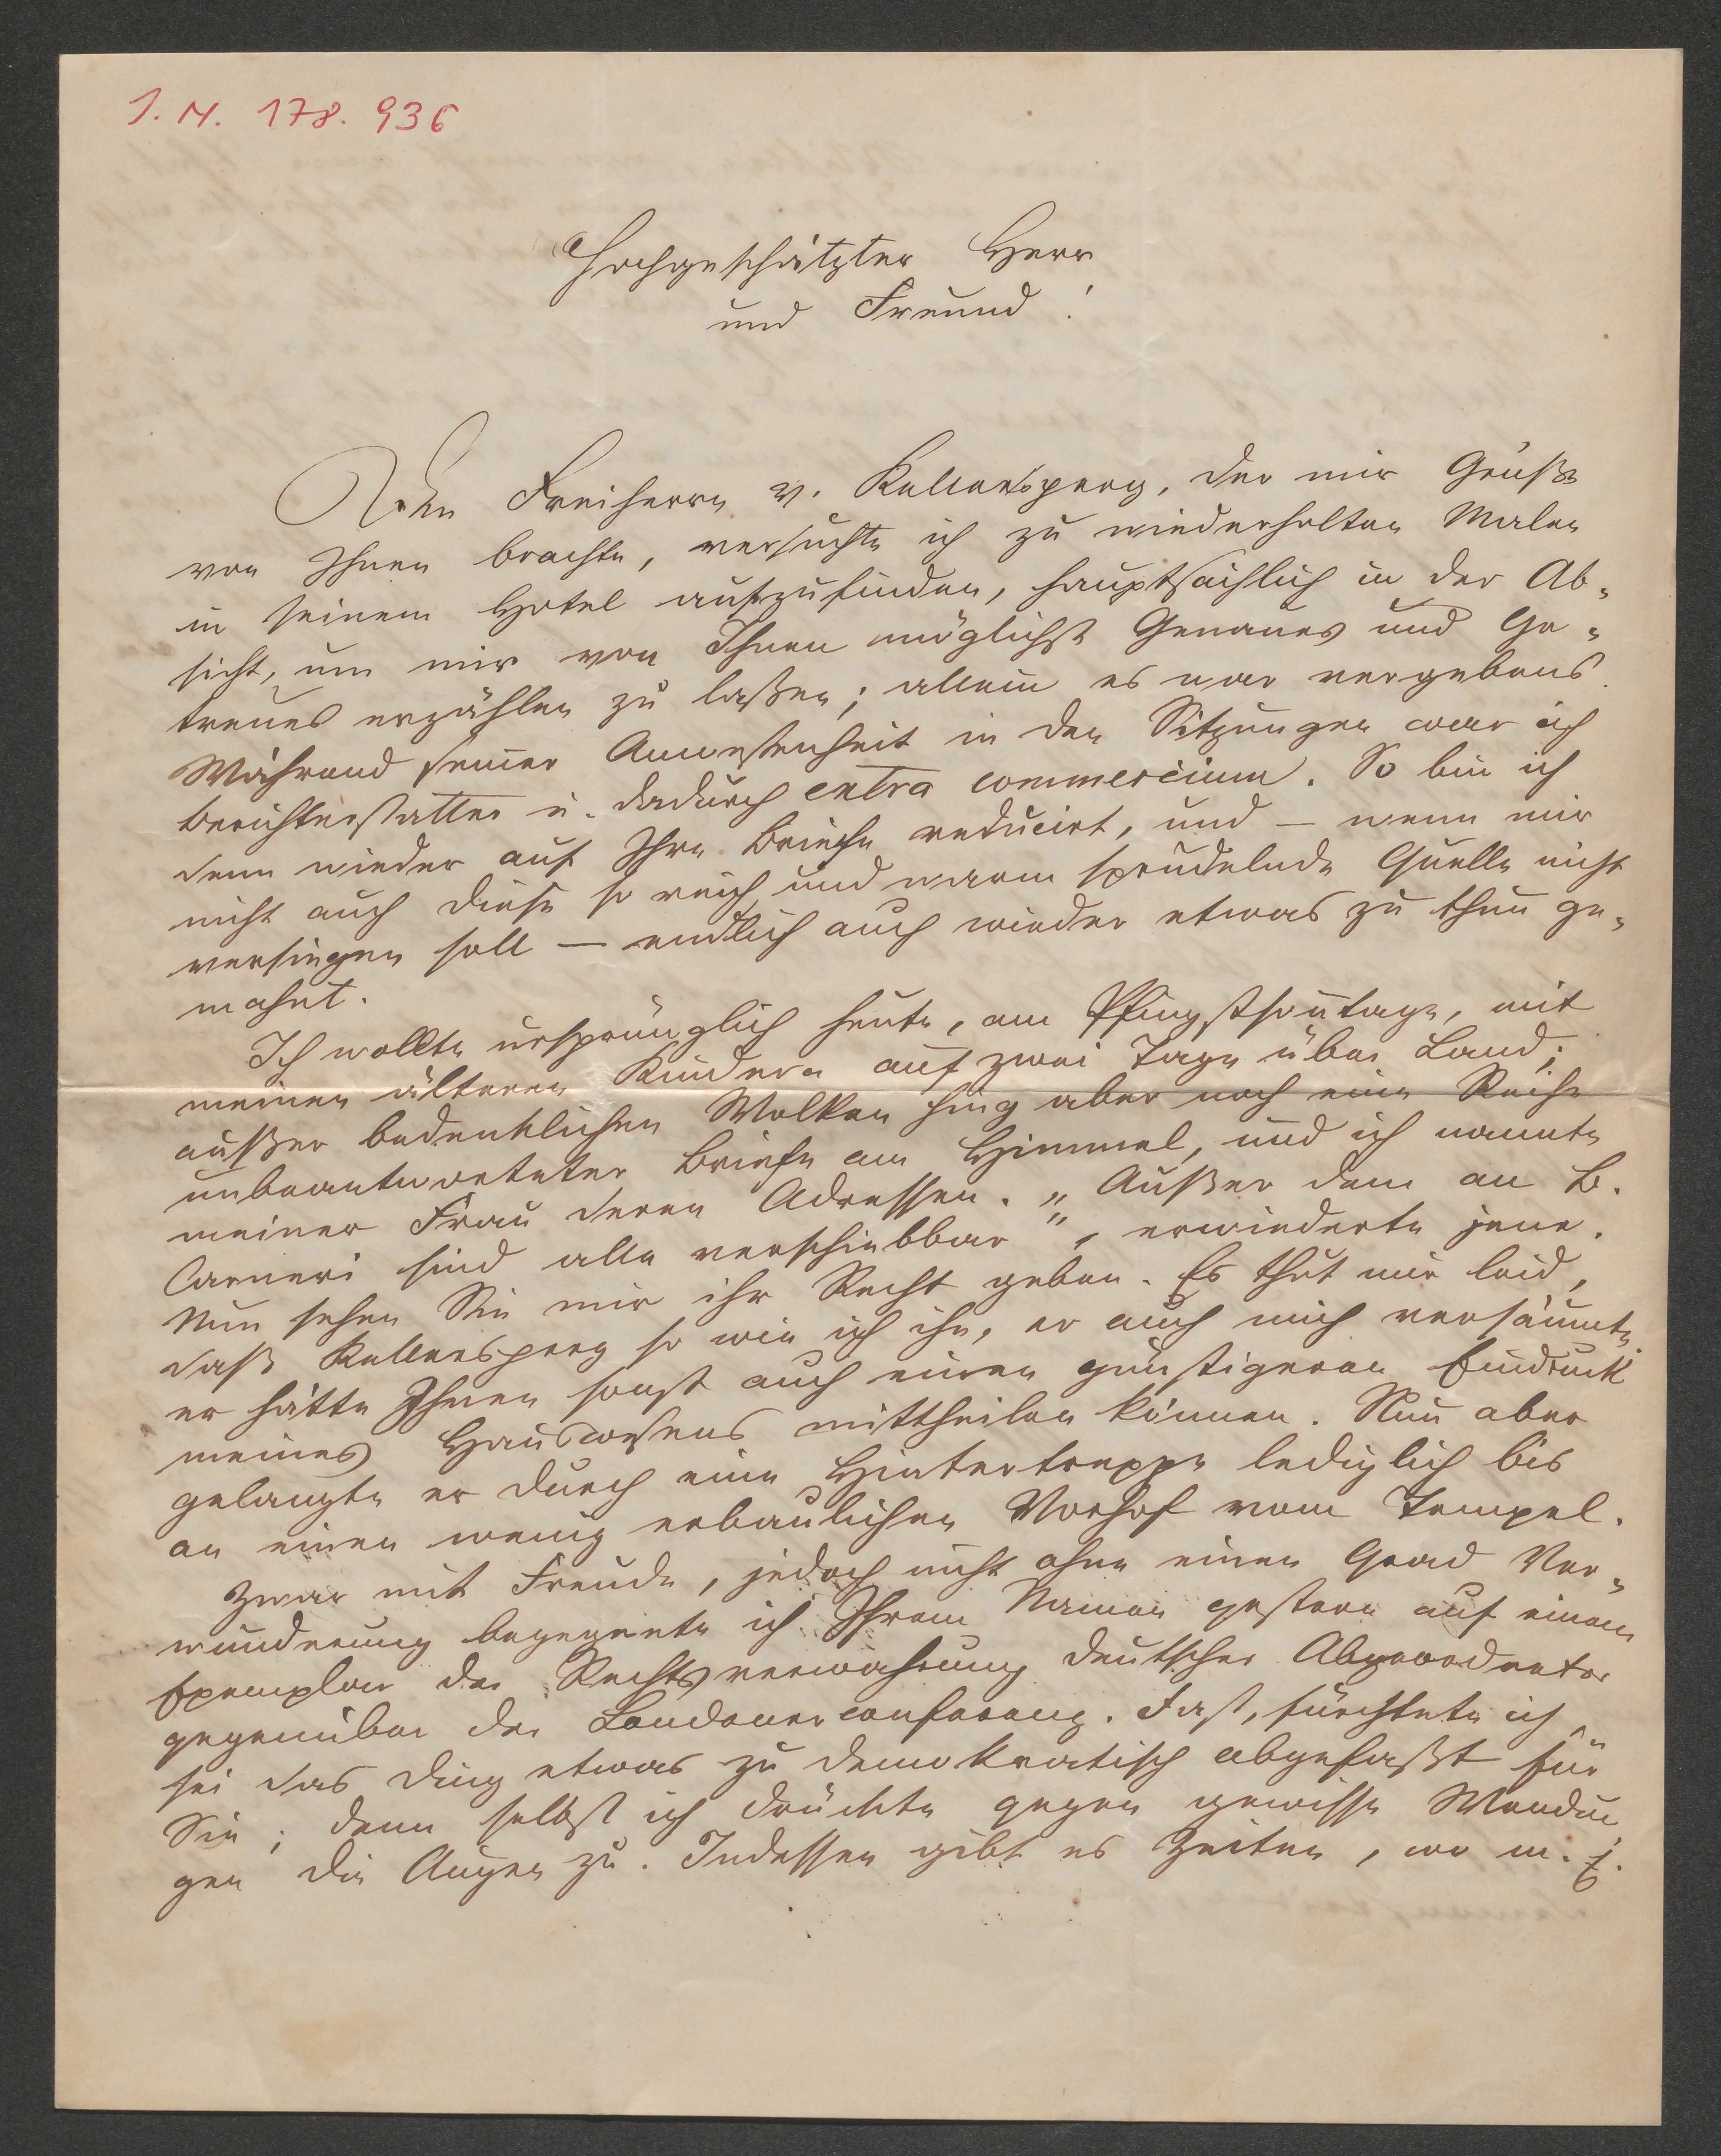 I. N. 178.936
Hochgeschätzter Herr
und Freund!
Den Freiherrn v. Kellersperg, der mir Grüße
von Ihnen brachte, versuchte ich zu wiederholten Malen
in seinem Hotel aufzufinden, hauptsächlich in der Ab-
sicht, um mir von Ihnen möglichst Genaues und Ge-
treues erzählen zu laßen; allein es war vergebens.
Während seiner Anwesenheit in den Sitzungen war ich
Berichterstatter u. dadurch extra commercium. So bin ich
denn wieder auf Ihre Briefe reducirt, und – wenn mir
nicht auch diese so reich und warm sprudelnde Quelle nicht
versiegen soll – endlich auch wieder etwas zu thun ge-
mahnt.
Ich wollte ursprünglich heute, am Pfingstsontage, mit
meinen älteren Kindern auf zwei Tage über Land;
außer bedenklichen Wolken hing aber noch eine Reihe
unbeantworteter Briefe am Himmel, und ich nannte
meiner Frau deren Adressen. „Außer dem an B.
Carneri sind alle verschiebbar", erwiederte jene.
Nun sehen Sie mir ihr Recht geben. Es thut mir leid,
daß Kellersperg so wie ich ihn, er auch mich versäumte,
er hätte Ihnen sonst auch einen günstigeren Eindruck
meines Hauswesens mittheilen können. Nun aber
gelangte er durch eine Hintertreppe lediglich bis
an einen wenig erbaulichen Vorhof vom Tempel.
Zwar mit Freude, jedoch nicht ohne einen Grad Ver-
wunderung begegnete ich Ihrem Namen gestern auf einem
Exemplar der Rechtsverwahrung deutscher Abgeordneter
gegenüber der Londonerconferenz. Fast, fürchtete ich,
sei das Ding etwas zu demokratisch abgefaßt für
Sie; denn selbst ich drückte gegen gewisse Wendun
gen die Augen zu. Indessen gibt es Zeiten, wo m. E.